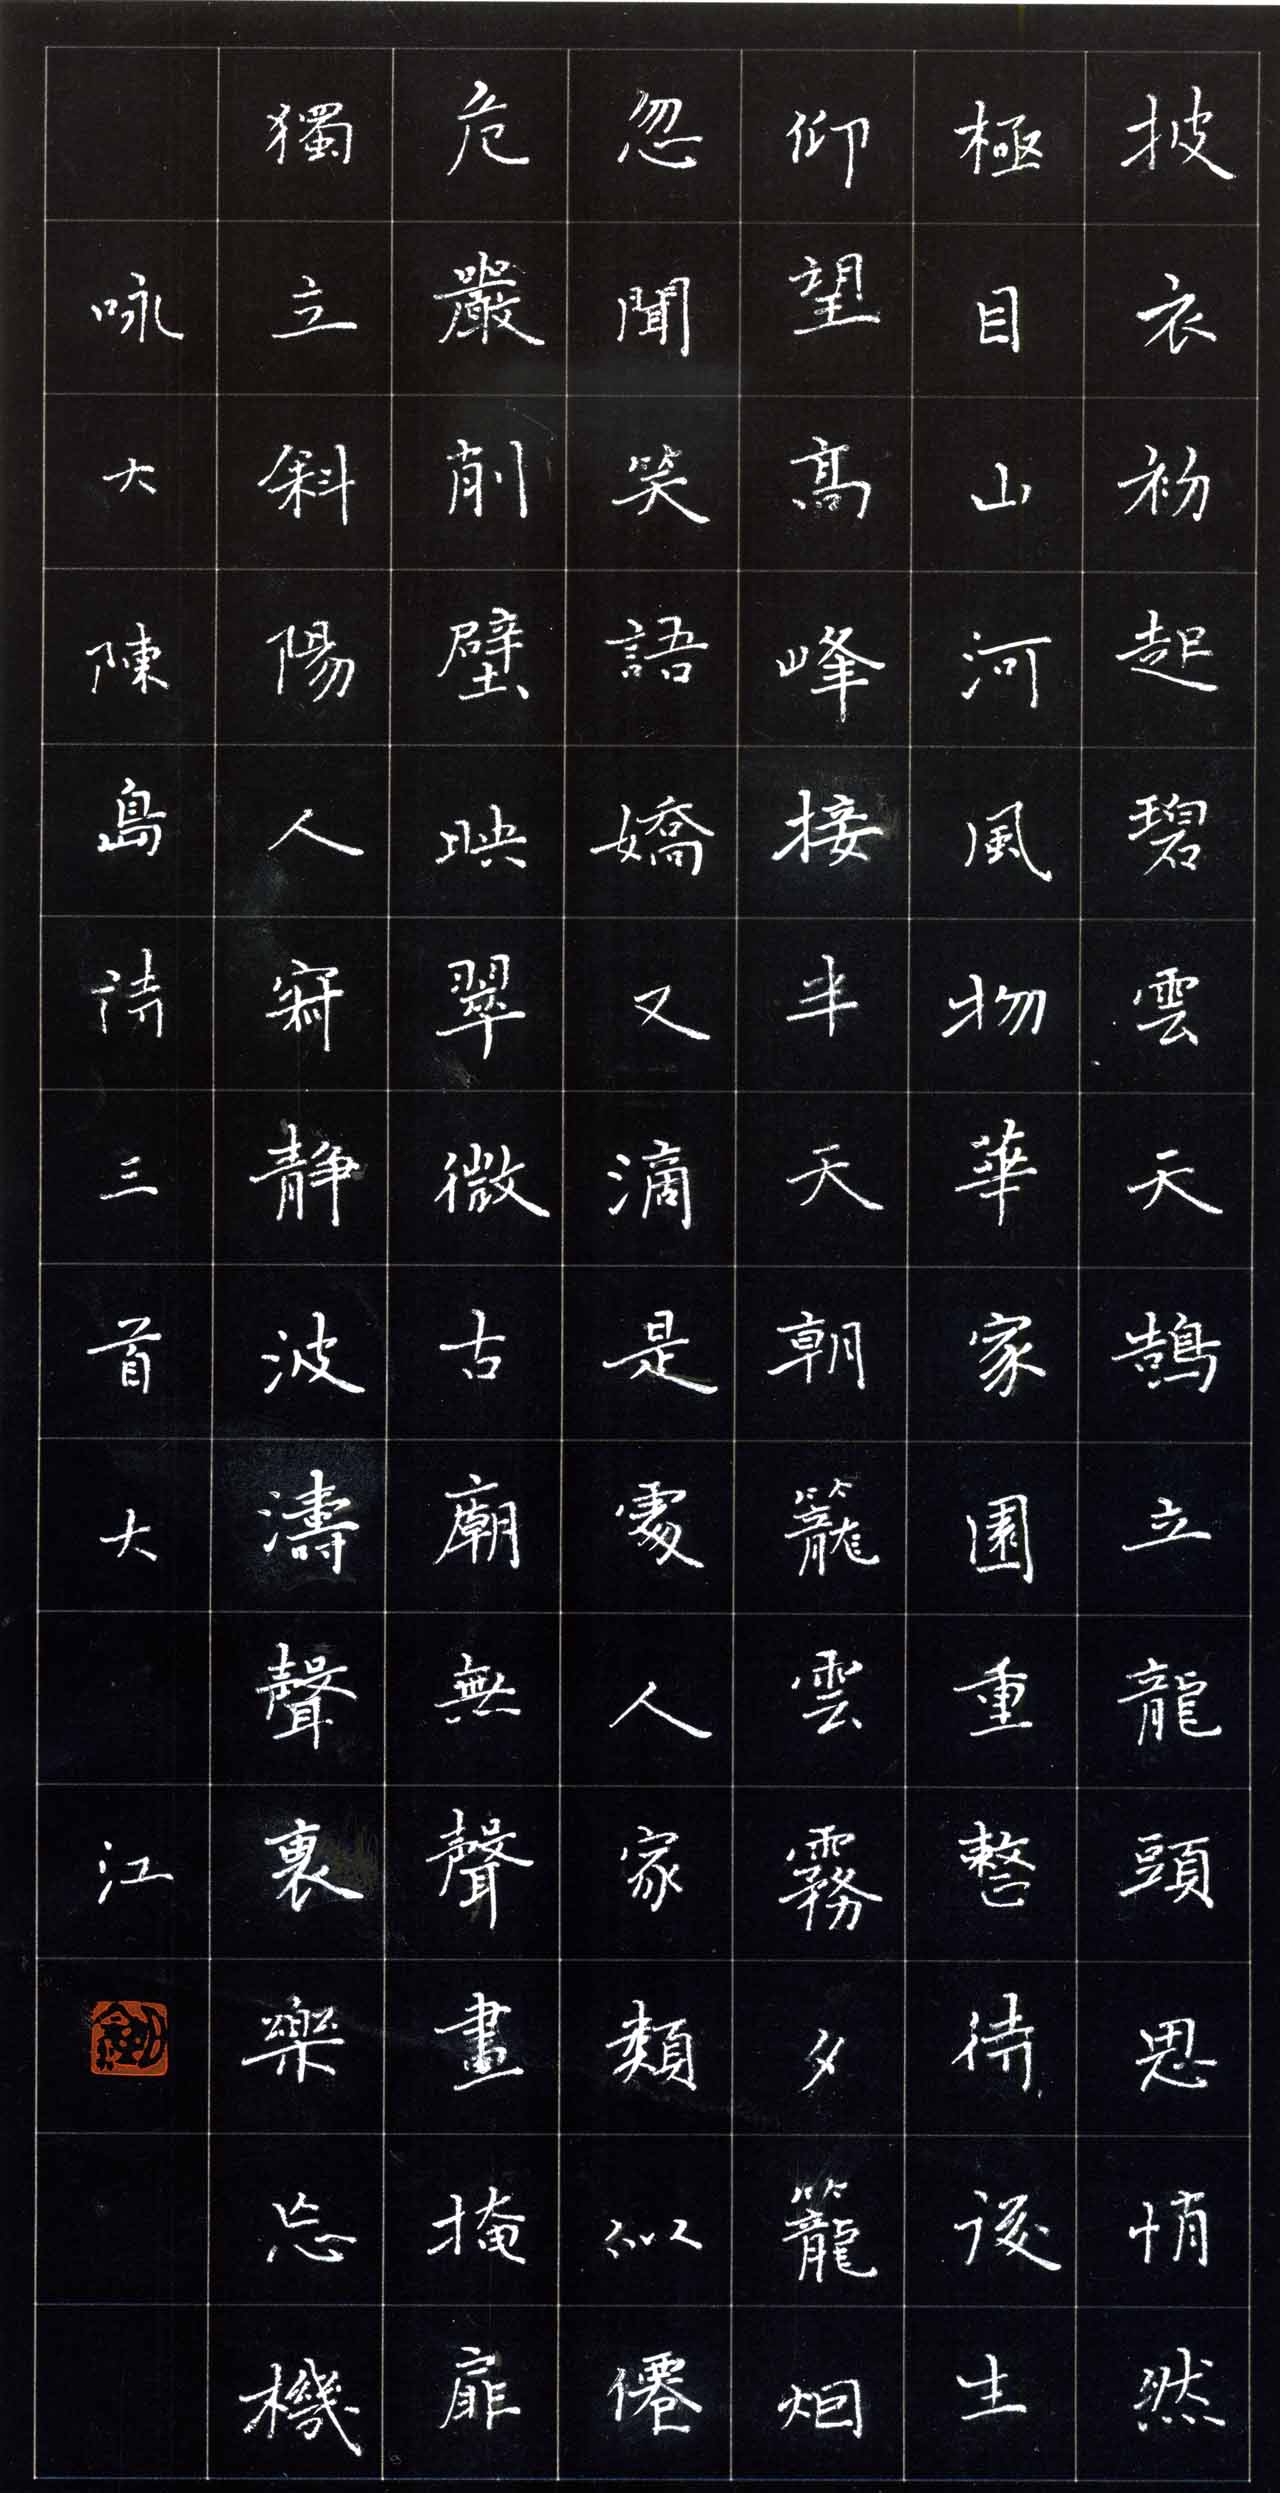 披衣初起碧雲天鵠立龍頭思悄然
極目山河風物華家園重整待後生
仰望高峰接半天朝籠雲霧夕籠烟
忽聞笑語嬌又滴是處人家類似僊
危嚴削壁映翠微古廟無聲晝掩扉
獨立斜陽人寂静波濤聲裏樂忘機
咏大陳島詩三首大江